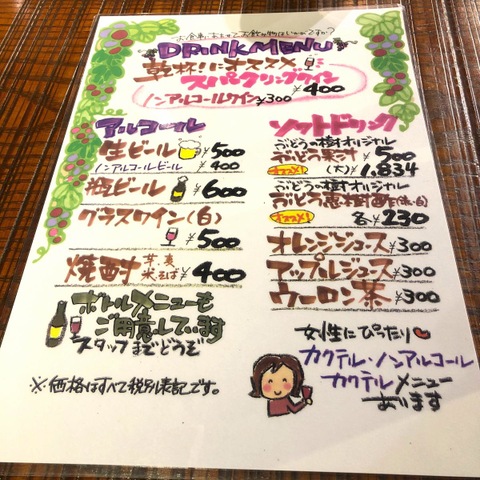 お食事におともにお飲み物はいかがですか?
DRINK MENU
乾杯!!にオススメ
スパークリングワイン
¥400
ノンアルコールワイン ¥300
アルコール
生ビール ¥500
ノンアルコールビール ¥400
瓶ビール ¥600
グラスワイン(白)
¥500
焼酎 芋 麦 米 そば ¥400
ボトルメニューも
ご用意しています
スタッフまでどうぞ
※価格はすべて税別表記です。
ソフトドリンク
ぶどうの樹オリジナル
ぶどう果汁 ¥500
オススメ! (大)¥1,834
ぶどうの樹オリジナル
ぶどう恵樹酢
オススメ! 各¥230
オレンジジュース ¥300
アップルジュース ¥300
ウーロン茶 ¥300
女性にぴったり
カクテル・ノンアルコール
カクテルメニュー
あります